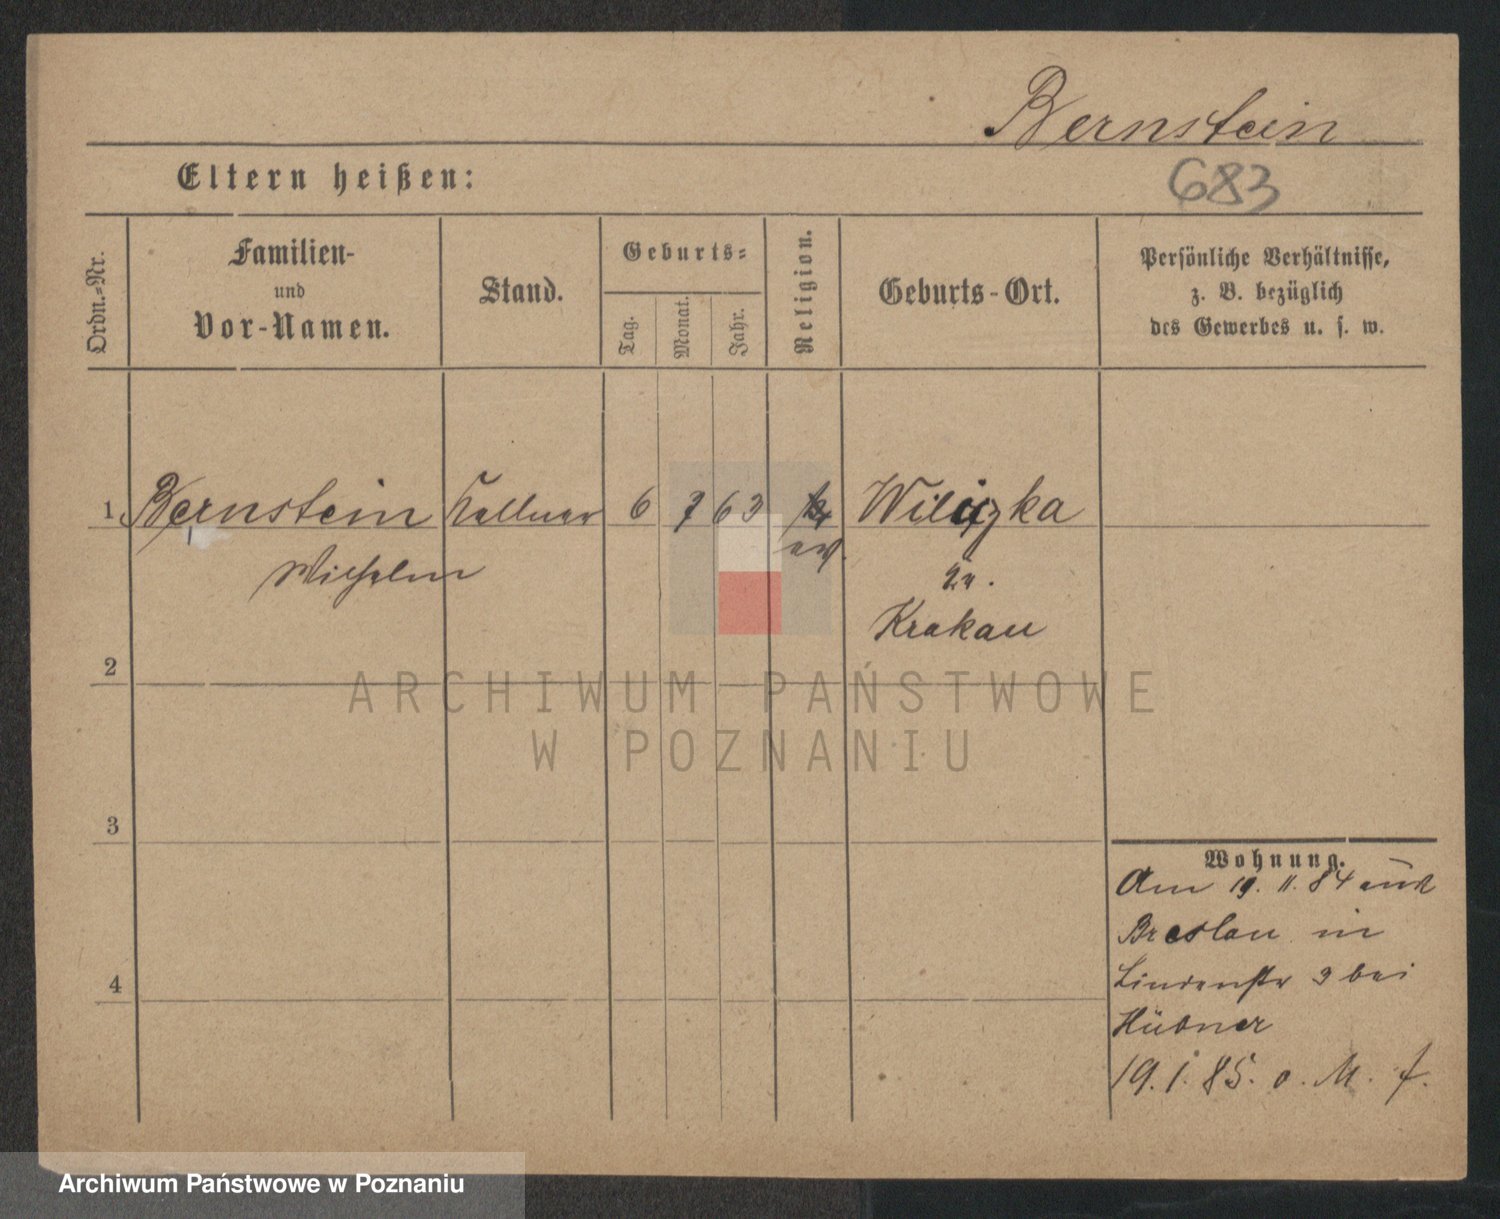 Bernstein
683
Eltern heißen:
Ordn.-Nr.
Familien-
und
Vor-Namen.
Stand.
Geburts-
Tag.
Monat.
Jahr.
Religion.
Geburts-Ort.
Persönliche Verhältnisse,
z. B. bezüglich
des Gewerbes u. s. w.
1 Bernstein Kellner 6 7 63 Wiliczka
Wilhelm ev.
Kr.
Krakau
2
ARCHIWUM PAŃSTWOWE
W POZNANIU
3
Wohnung.
Am 19. 11. 84 aus
Breslau in
Lindenstr 3 bei
Hübner
19. 1. 85. o. M. f.
4
Archiwum Państwowe w Poznaniu